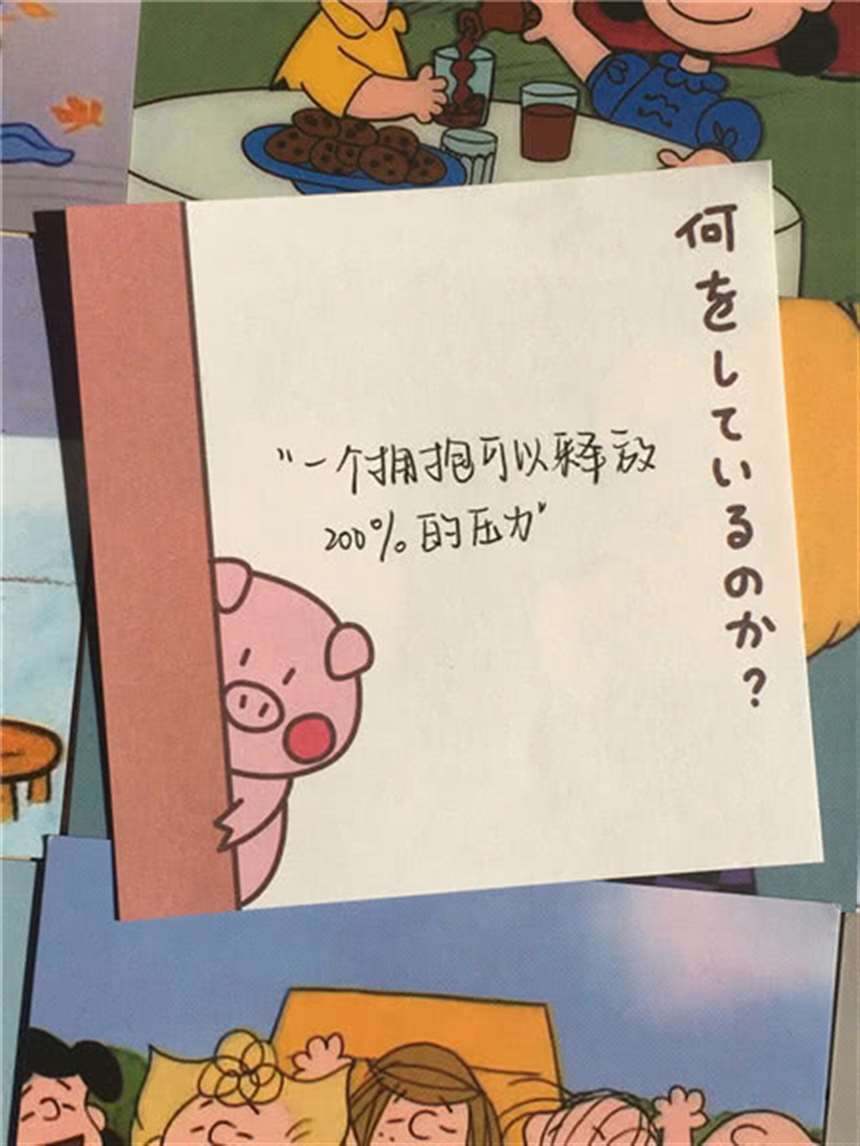 何をしているのか?
"一个拥抱可以释放
200%的压力"